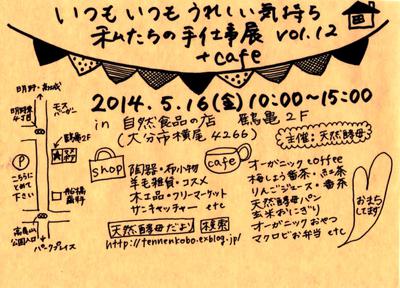 いつもいつもうれしい気持ち
私たちの手仕事展 vol.12
+cafe
2014.5.16(金)10:00~15:00
in 自然食品の店 鶴亀2F
(大分市横尾4266)
主催:天然酵母
モスバーガー
鶴亀2F
P
こちらに
とめて
下さい
船橋
歯科
公園入口
パークプレイス
shop
陶器・布小物
羊毛雑貨・コスメ
木工品・フリーマーケット
サンキャッチャー etc
cafe
オーガニックcoffee
梅しょう番茶・紅茶
りんごジュース・番茶
天然酵母パン
玄米おにぎり
オーガニックおやつ
マクロビお弁当 etc
おまち
してます
天然酵母だより 検索
http://tennenkobo.exblog.jp/